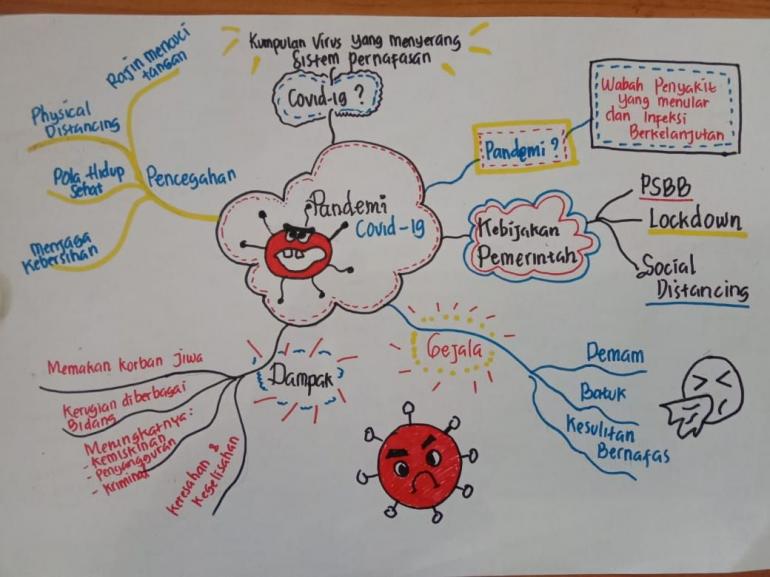 Kumpulan Virus yang menyerang
Sistem Pernafasan
Covid-19 ?
Pandemi
Covid-19
Pencegahan
Rajin mencuci
tangan
Physical
Distancing
Pola Hidup
Sehat
Menjaga
Kebersihan
Pandemi ?
Wabah Penyakit
yang menular
dan Infeksi
Berkelanjutan
Kebijakan
Pemerintah
PSBB
Lockdown
Social
Distancing
Gejala
Demam
Batuk
Kesulitan
Bernafas
Dampak
Memakan korban jiwa
Kerugian diberbagai
Bidang
Meningkatnya:
- Kemiskinan
- Pengangguran
- Kriminal
Keresahan &
Kegelisahan